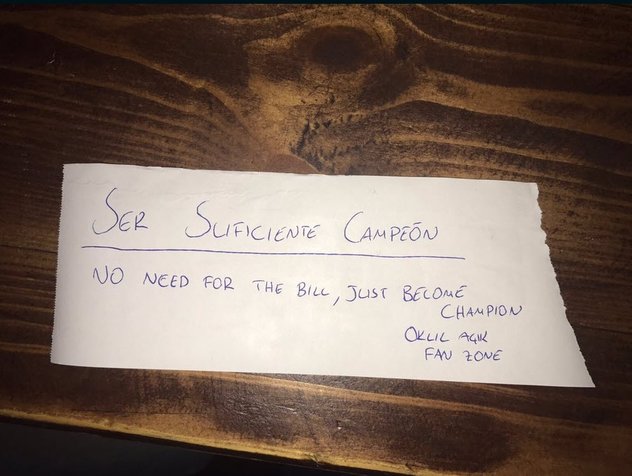 SER SUFICIENTE CAMPEÓN
NO NEED FOR THE BILL, JUST BECOME
CHAMPION
OKLIL AGIK
FAN ZONE